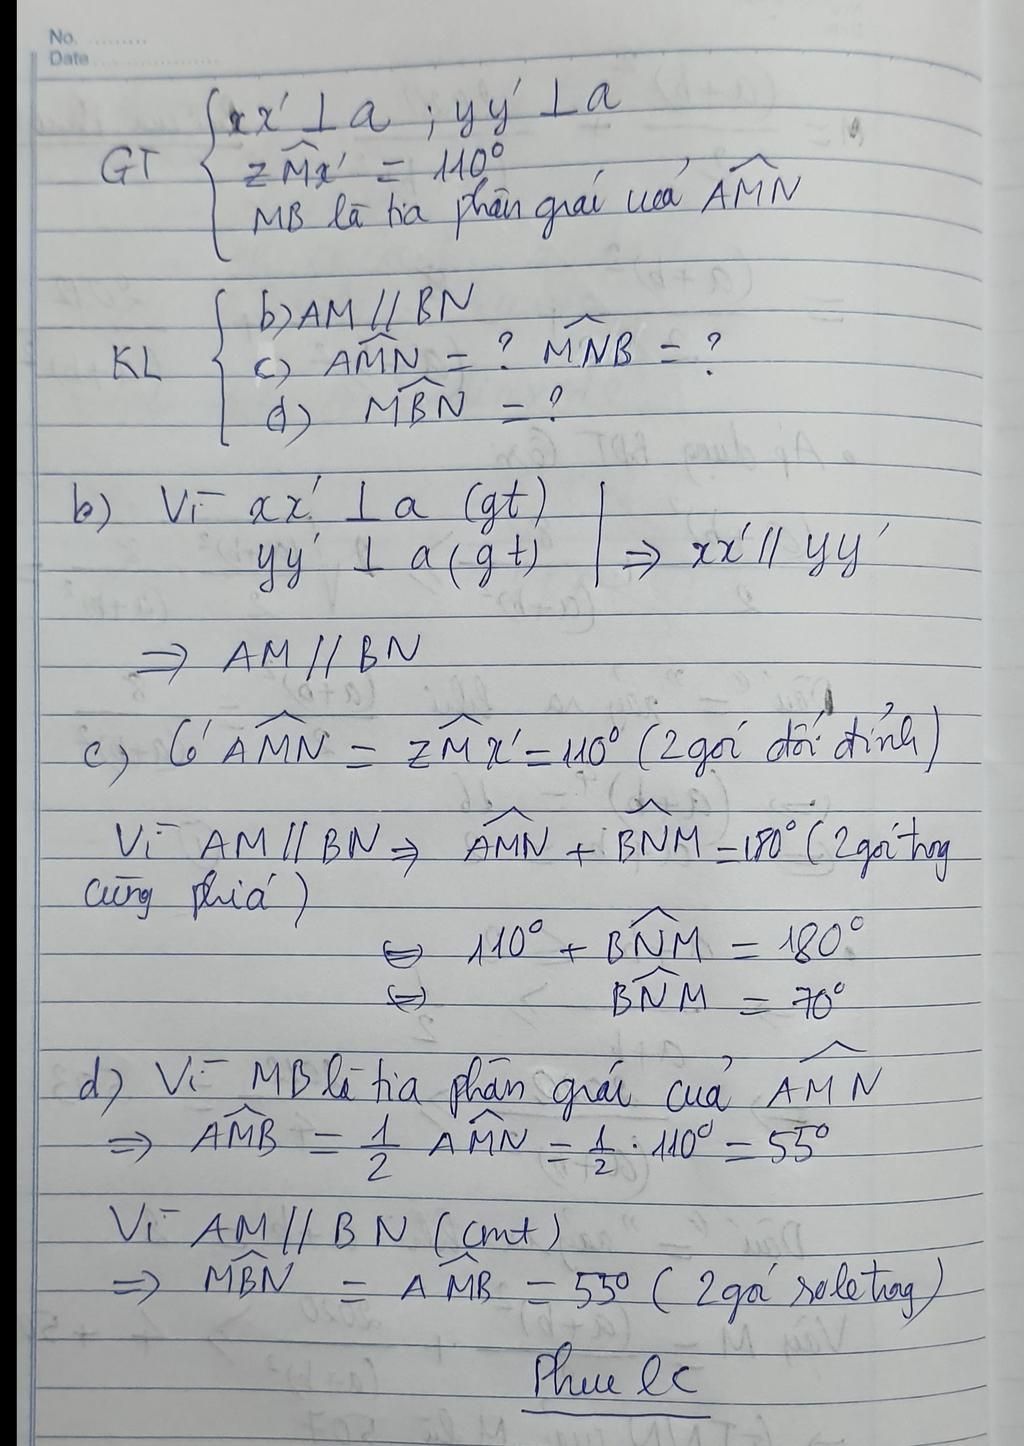 No. ..........
Date ....................
GT { xx' ⊥ a ; yy' ⊥ a
zMx' = 110°
MB là tia phân giác của AMN
KL { b) AM // BN
c) AMN = ? MNB = ?
d) MBN = ?
b) Vì xx' ⊥ a (gt)
yy' ⊥ a (gt) | ⇒ xx' // yy'
⇒ AM // BN
c) Có AMN = zMx' = 110° (2 góc đối đỉnh)
Vì AM // BN ⇒ AMN + BNM = 180° (2 góc trong
cùng phía)
⇔ 110° + BNM = 180°
⇔ BNM = 70°
d) Vì MB là tia phân giác của AMN
⇒ AMB = 1/2 AMN = 1/2 . 110° = 55°
Vì AM // BN (cmt)
⇒ MBN = AMB = 55° (2 góc so le trong)